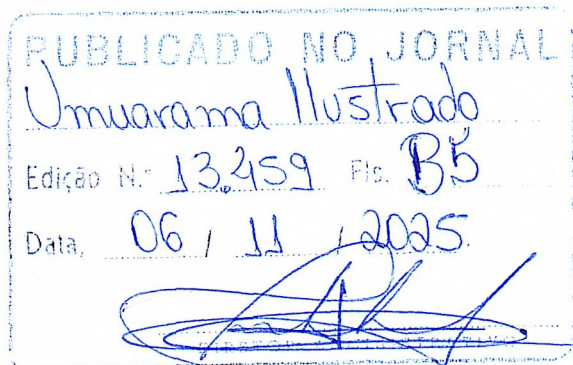 PUBLICADO NO JORNAL
Umuarama Ilustrado
Edição N.º 13.459 Fls. B5
Data, 06 / 11 / 2025